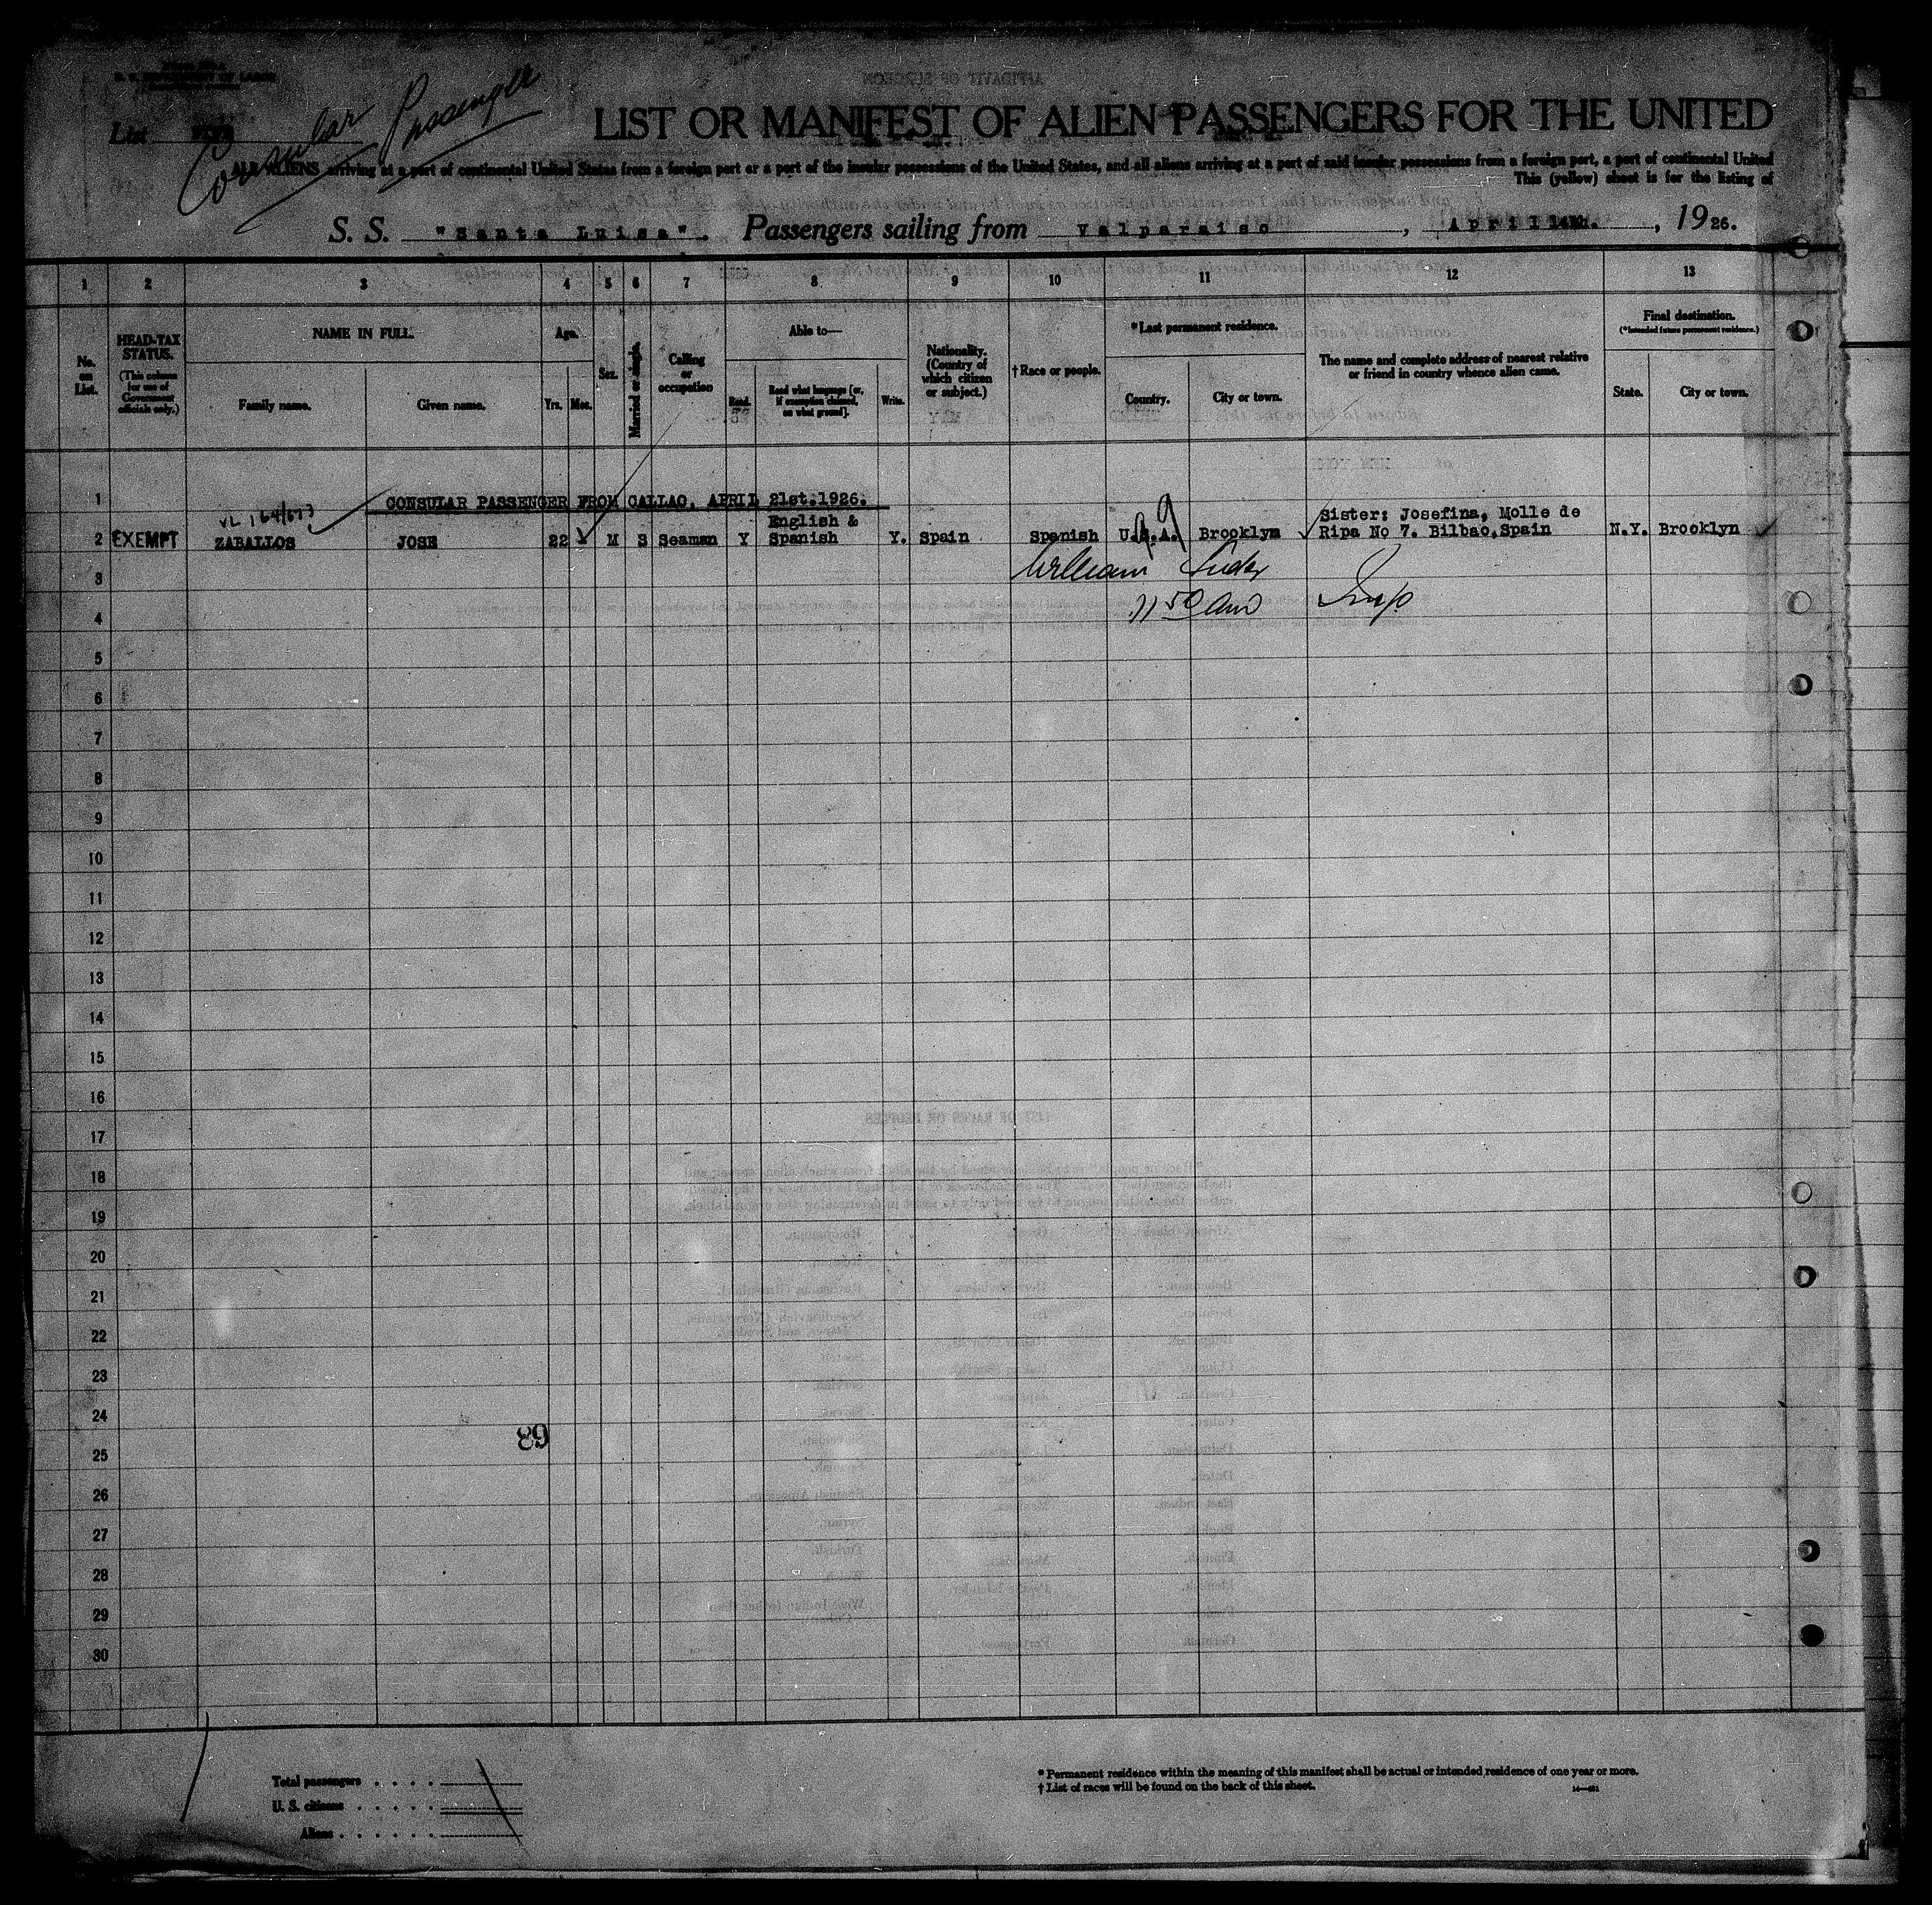 U. S. DEPARTMENT OF LABOR
List
Consular Passenger
LIST OR MANIFEST OF ALIEN PASSENGERS FOR THE UNITED
ALL ALIENS arriving at a port of continental United States from a foreign port or a port of the insular possessions of the United States, and all aliens arriving at a port of said insular possessions from a foreign port, a port of continental United
This (yellow) sheet is for the listing of
S. S. "Santa Luisa". Passengers sailing from Valparaiso, April 14th., 1926.
1 2 3 4 5 6 7 8 9 10 11 12 13
No. on List.
HEAD-TAX STATUS. (This column for use of Government officials only.)
NAME IN FULL.
Family name. Given name.
Age.
Yrs. Mos.
Sex.
Married or single.
Calling or occupation
Able to—
Read. Read what language [or, if exemption claimed, on what ground]. Write.
Nationality. (Country of which citizen or subject.)
† Race or people.
*Last permanent residence.
Country. City or town.
The name and complete address of nearest relative or friend in country whence alien came.
Final destination.
(*Intended future permanent residence.)
State. City or town.
1 CONSULAR PASSENGER FROM CALLAO, APRIL 21st.1926.
2 EXEMPT ZABALLOS JOSE 22 M S Seaman Y English & Spanish Y. Spain Spanish U.S.A. Brooklyn Sister: Josefina, Molle de Ripa No 7. Bilbao,Spain N.Y. Brooklyn
3 William
4 11 50 am Insp
5
6
7
8
9
10
11
12
13
14
15
16
17
18
19
20
21
22
23
24
89
25
26
27
28
29
30
Total passengers
U. S. citizens
Aliens
* Permanent residence within the meaning of this manifest shall be actual or intended residence of one year or more.
† List of races will be found on the back of this sheet.